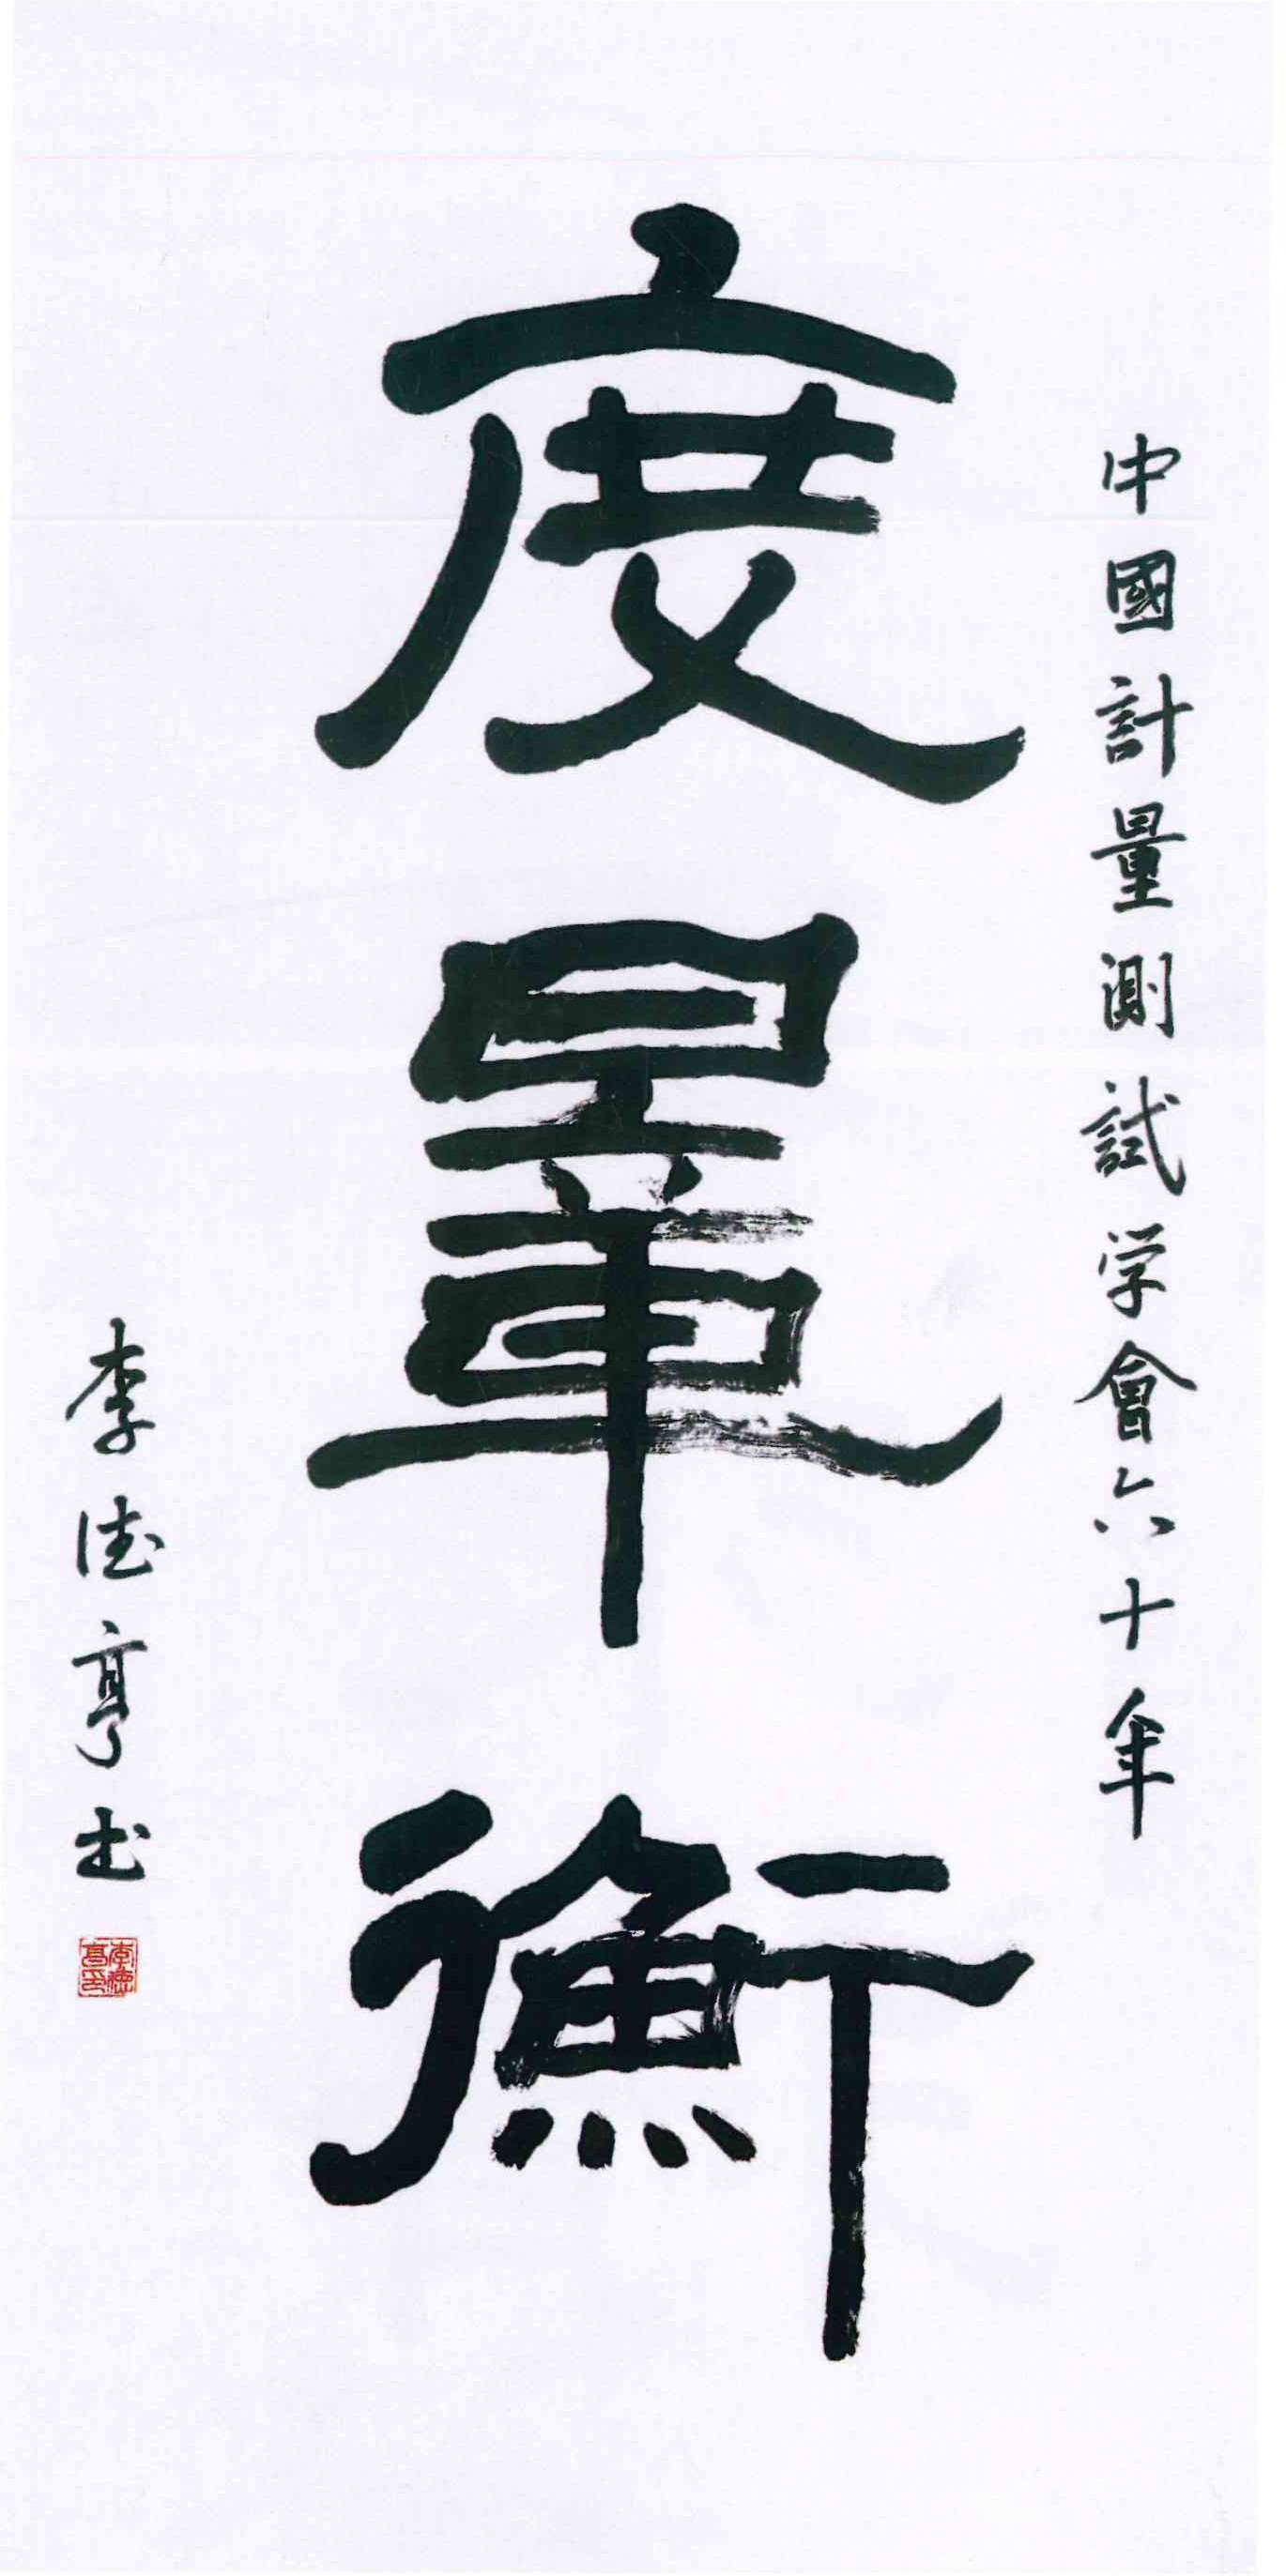 中國計量測試学會六十年
度量衡
李德亨书
李德亨印